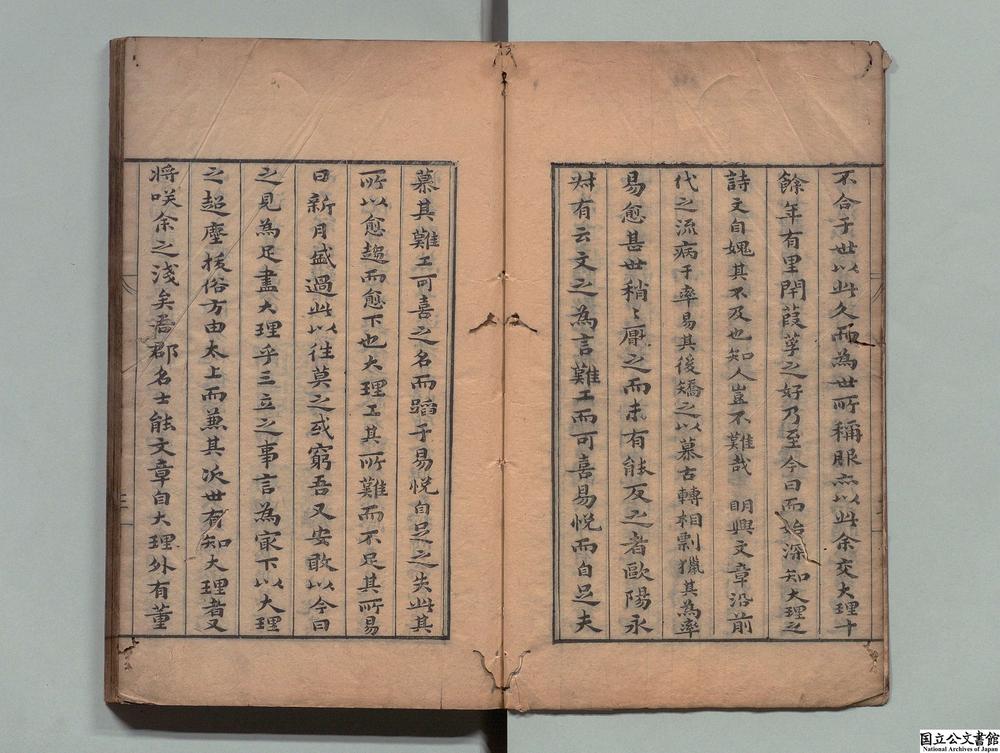 不合于世以此久而為世所稱服亦以此余交大理十
餘年有里閈葭莩之好乃至今日而始深知大理之
詩文自媿其不及也知人豈不難哉　明興文章沿前
代之流病于率易其後矯之以慕古轉相剽獵其為率
易愈甚世稍〻厭之而未有能反之者歐陽永
叔有云文之為言難工而可喜易悅而自足夫
慕其難工可喜之名而蹈于易悅自足之失此其
所以愈趨而愈下也大理工其所難而不足其所易
日新月盛過此以往莫之或窮吾又安敢以今日
之見為足盡大理乎三立之事言為家下以大理
之超塵拔俗方由太上而兼其次世有知大理者又
將咲余之淺矣吾郡名士能文章自大理外有董
国立公文書館
National Archives of Japan